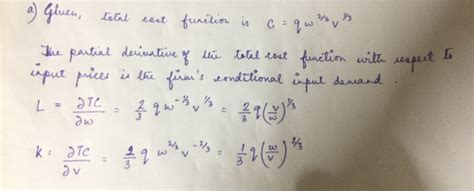 a) Given, total cost function is C = q w^2/3 v^1/3
The partial derivative of the total cost function with respect to
input prices is the firm's conditional input demand.
L = ∂TC/∂w = 2/3 q w^-1/3 v^1/3 = 2/3 q (v/w)^1/3
K = ∂TC/∂v = q w^2/3 v^-2/3 = 1/3 q (w/v)^2/3